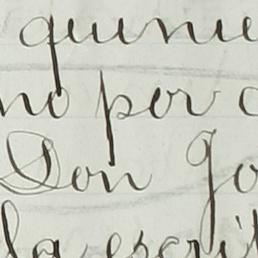 quinie
no por
Don Jo
la escrit